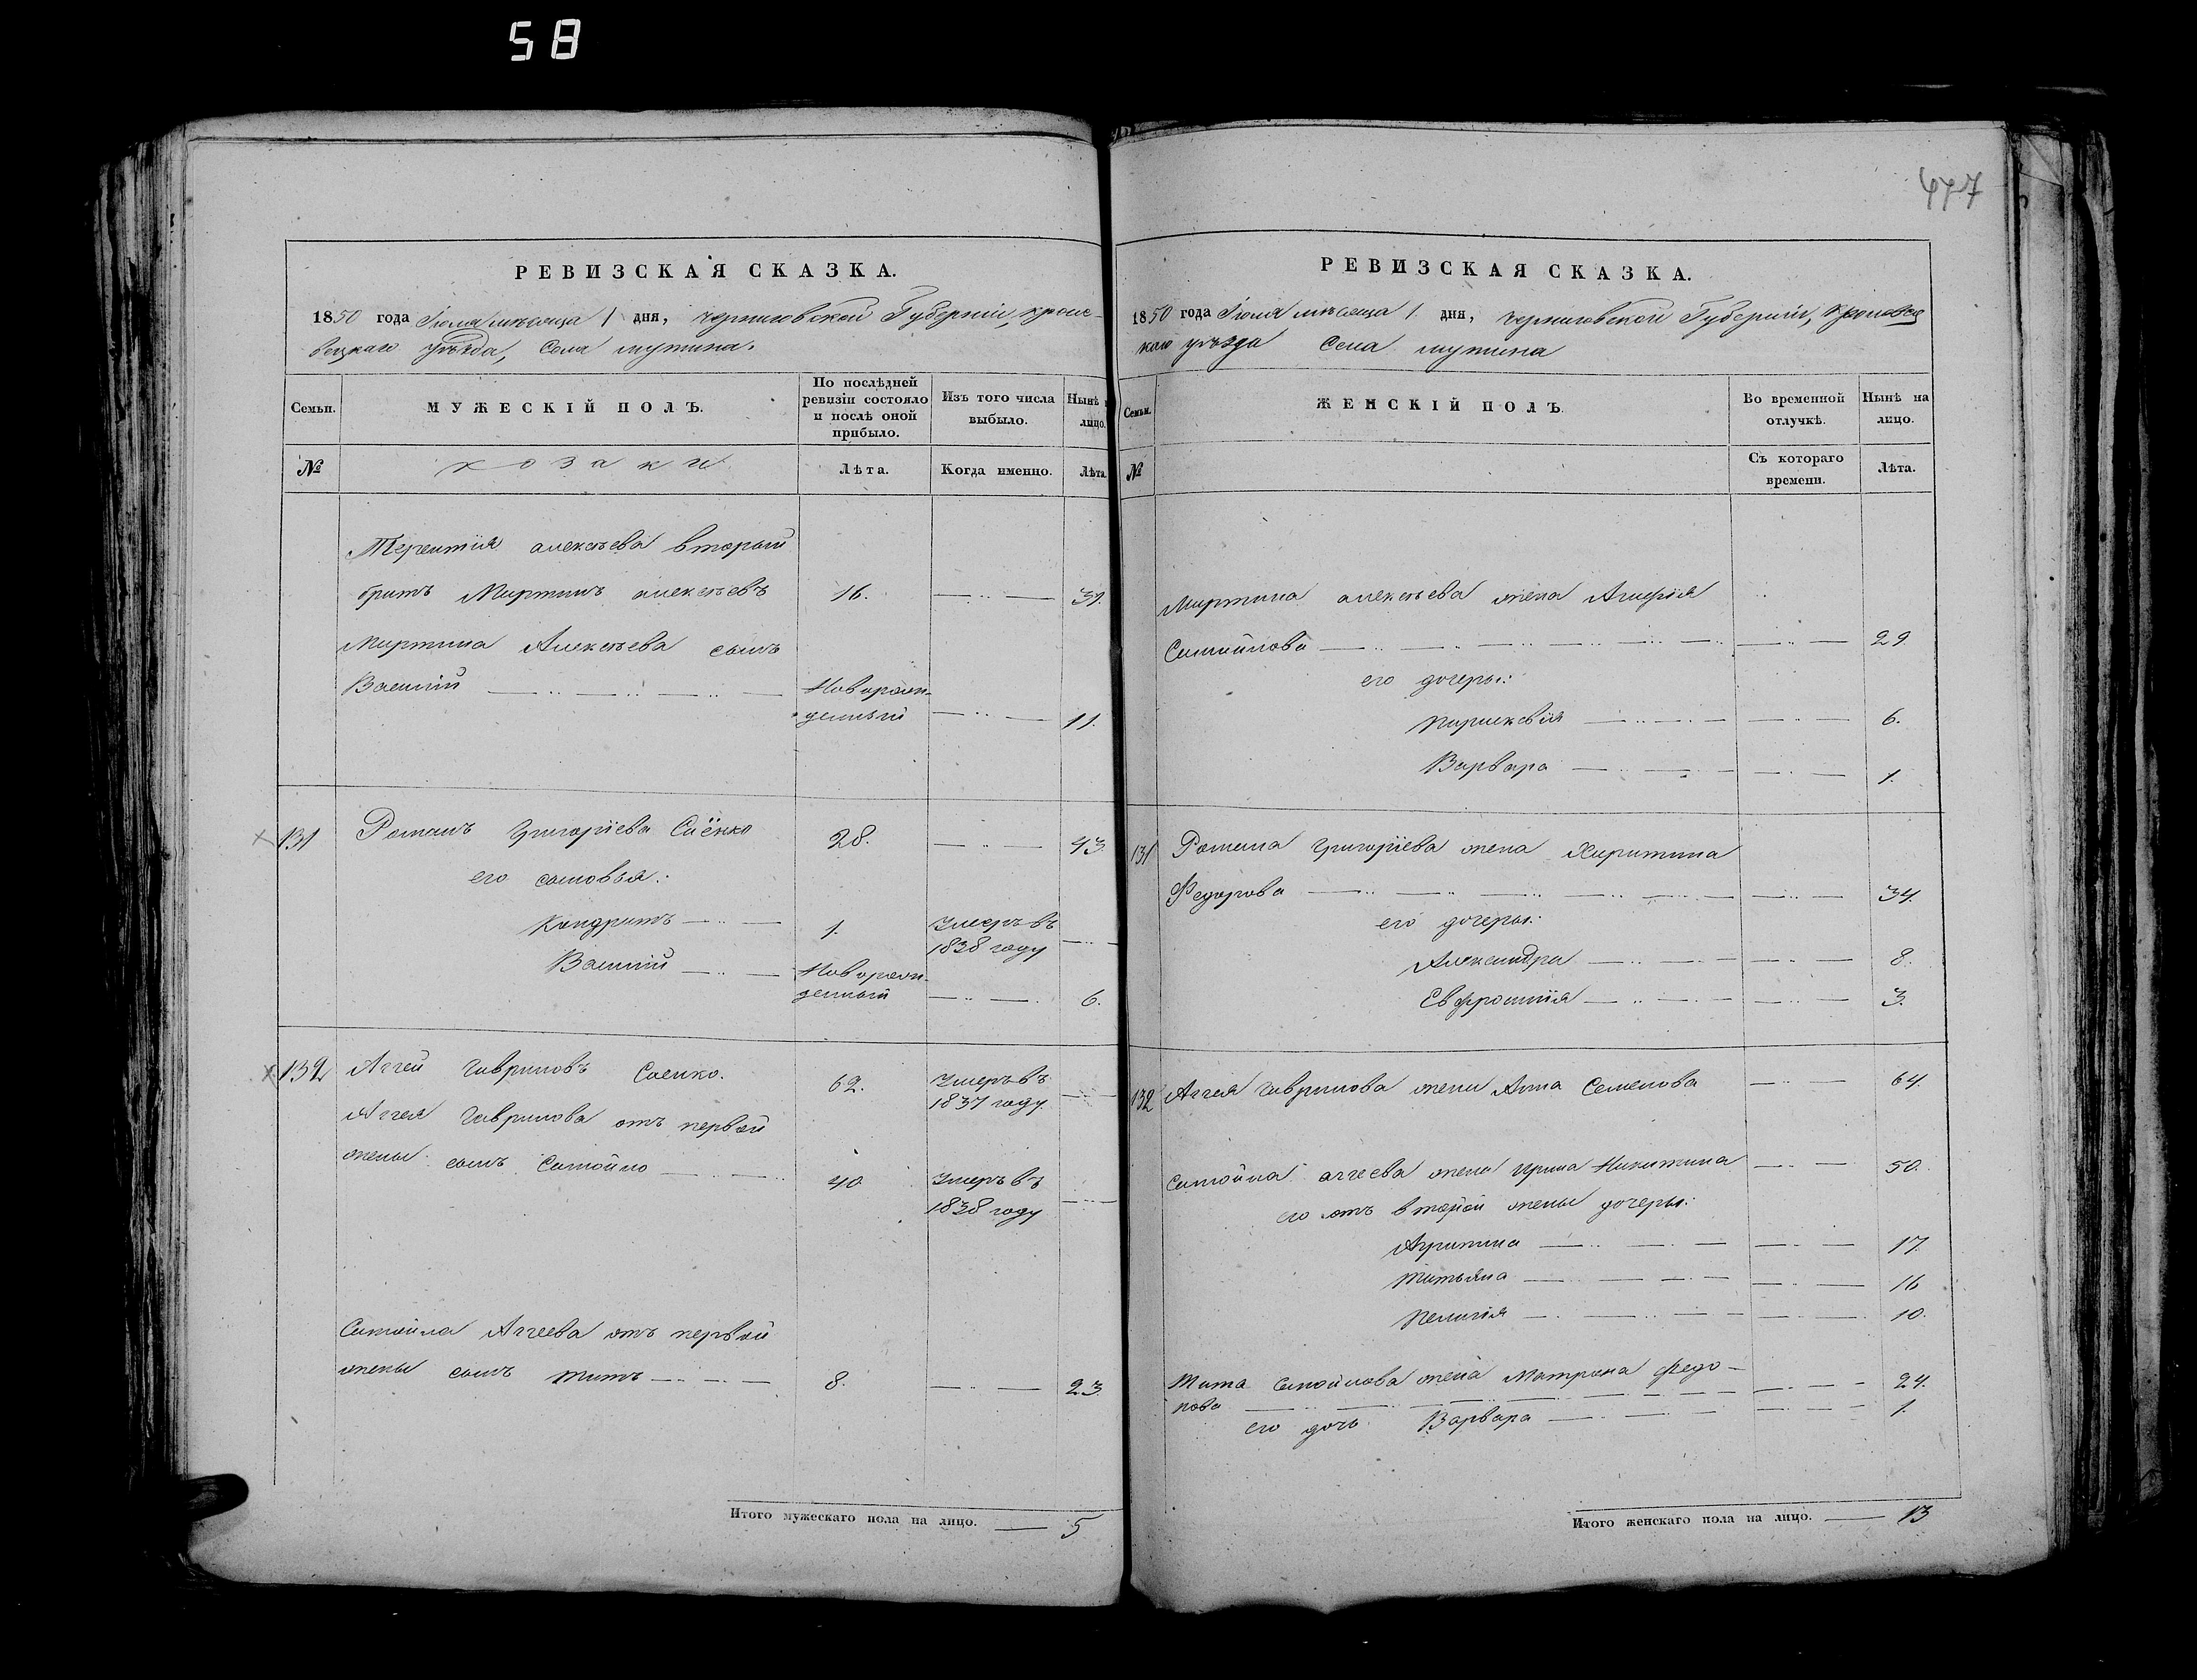 58
477
РЕВИЗСКАЯ СКАЗКА.
1850 года Іюля мѣсяца 1 дня, Черниговской Губерніи, Кроле-
вецкаго уѣзда, Села Мутина.
Семьи.
МУЖЕСКІЙ ПОЛЪ.
По послѣдней ревизіи состояло и послѣ оной прибыло.
Изъ того числа выбыло.
Нынѣ
лицо.
№
козаки
Лѣта.
Когда именно.
Лѣта.
Терентія алексѣева вторый
братъ Мартинъ алексѣевъ 16. 31.
Мартина Алексѣева сынъ
Василій Новорож-
денный 11.
131 Романъ Григоріева Саёнко 28. 43.
его сыновья:
Кондратъ 1. Умеръ въ
1838 году
Василій Новорож-
денный 6.
132 Аггей Гавриловъ Саенко. 62. Умеръ въ
1837 году.
Аггея Гаврилова отъ первой
жены сынъ Самойло 40 Умеръ въ
1838 году
Самойла Аггеева отъ первой
жены сынъ Титъ 8. 23
Итого мужескаго пола на лицо. 5
РЕВИЗСКАЯ СКАЗКА.
1850 года Іюля мѣсяца 1. дня, Черниговской Губерніи,
уѣзда Села Мутина
Семьи.
ЖЕНСКІЙ ПОЛЪ.
Во временной отлучкѣ.
Нынѣ на лицо.
№
Съ котораго времени.
Лѣта.
Мартина алексѣева жена
Самойлова 29.
его дочеры:
Параскевія 6.
Варвара 1.
131 Романа Григоріева жена Харитина
Федорова 34.
его дочеры:
Александра 8.
Евфросинія 3.
132 Аггея Гаврилова жена Анна Семенова 64.
Самойла аггеева жена Ирина Никитина 50.
его отъ второй жены дочеры:
17.
Татьяна 16
Пелагія 10.
Тита Самойлова жена Матрона
24.
его дочь Варвара 1.
Итого женскаго пола на лицо. 13